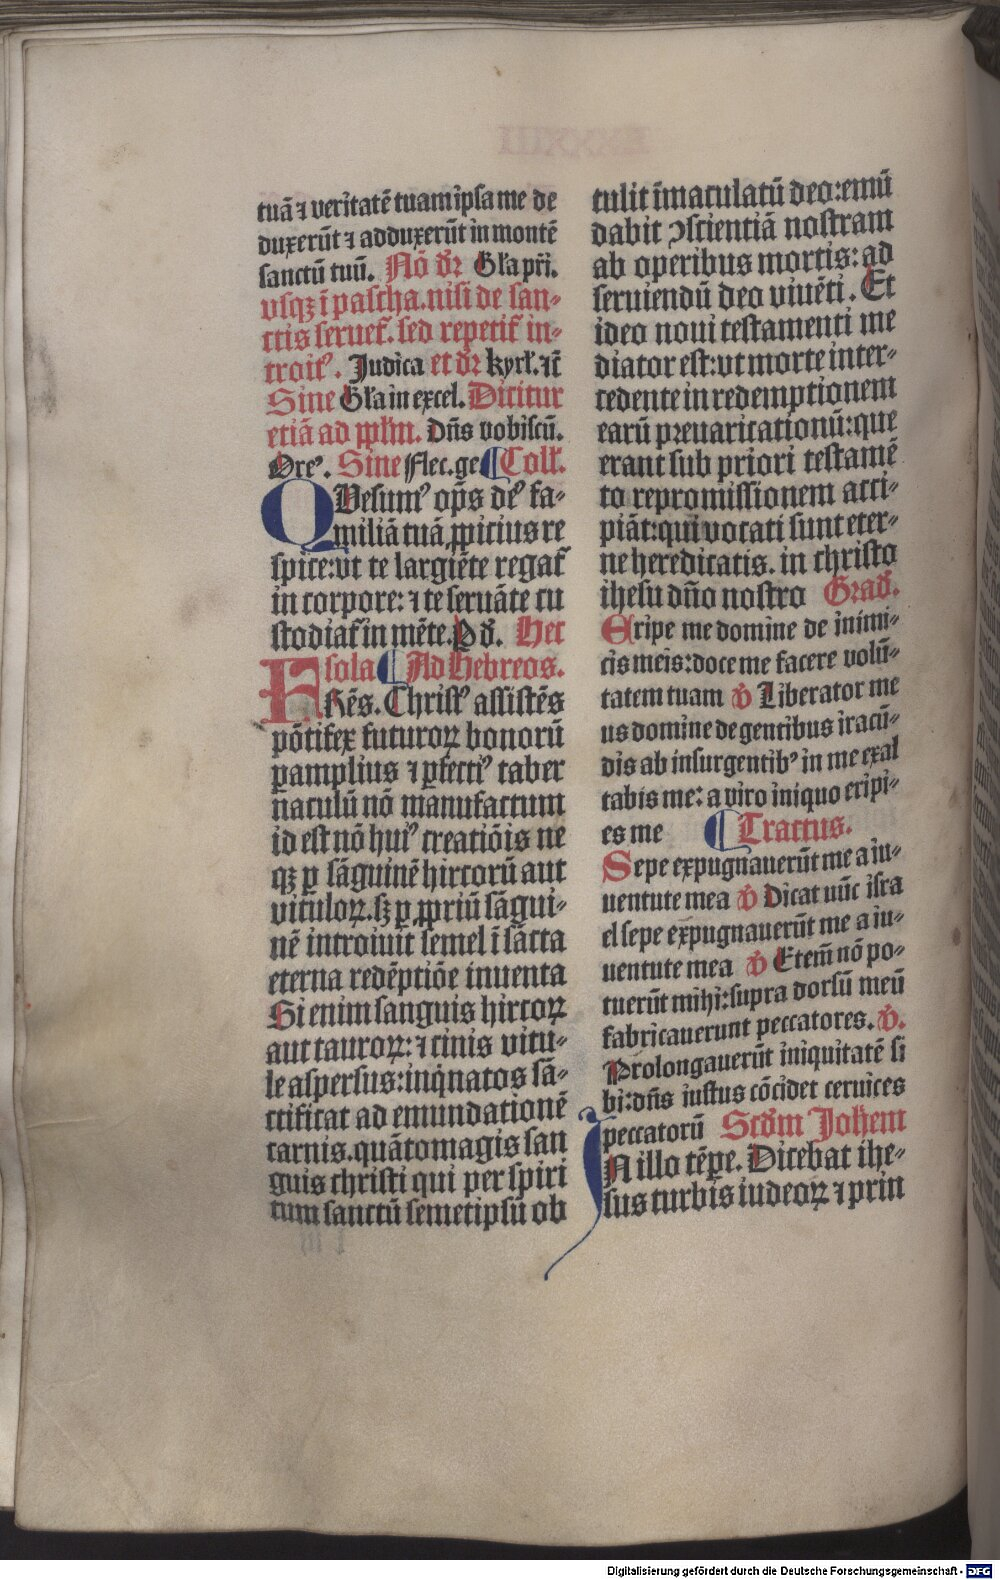 tuā ⁊ veritatē tuam ipsa me de
duxerūt ⁊ adduxerūt in montē
sanctū tuū. Nō dr̄ Gl̄a pr̄i.
vsqꝫ ī pascha. nisi de san-
ctis seruet̄. sed repetit̄ in-
troitꝰ. Judica et dr̄ kyrl̄. ⁊ī
Sine Gl̄a in excel. Dicitur
etiā ad ꝓplm̄. Dn̄s vobiscū.
Oreꝰ. Sine Flec. ge Coll̄.
QVesumꝰ op̄s deꝰ fa-
miliā tuā ꝓpicius re
spice: vt te largiēte regat̄
in corpore: ⁊ te seruāte cu
stodiat̄ in mēte. P d̄. Hec
sola Ad Hebreos.
FRēs. Christꝰ assistēs
pōtifex futuroꝝ bonorū
ꝑ amplius ⁊ ꝑfectiꝰ taber
naculū nō manufactum
id est nō huiꝰ creatiōis ne
qꝫ ꝑ sāguinē hircorū aut
vituloꝝ. sꝫ ꝑ ꝓpriū sāgui-
nē introiuit semel ī sācta
eterna redēptiōe inuenta
Si enim sanguis hircoꝝ
aut tauroꝝ: ⁊ cinis vitu-
le aspersus: inq̄natos sā-
ctificat ad emundationē
carnis. quāto magis san
guis christi qui per spiri
tum sanctū semetipsū ob
tulit īmaculatū deo: emū
dabit ꝯscientiā nostram
ab operibus mortis: ad
seruiendū deo viuēti. Et
ideo noui testamenti me
diator est: vt morte inter-
cedente in redemptionem
earū preuaricationū: que
erant sub priori testamē
to repromissionem acci-
piāt: qui vocati sunt eter-
ne hereditatis. in christo
ihesu dn̄o nostro Grad̄.
Eripe me domine de inimi-
cis meis: doce me facere volū-
tatem tuam ℣ Liberator me
us domine de gentibus iracū-
dis ab insurgentibꝰ in me exal
tabis me: a viro iniquo eripi-
es me Tractus.
Sepe expugnauerūt me a iu-
uentute mea ℣ Dicat nūc isra
el sepe expugnauerūt me a iu-
uentute mea ℣ Etem̄ nō po-
tuerūt mihi: supra dorsū meū
fabricauerunt peccatores. ℣.
Prolongauerūt iniquitatē si
bi: dn̄s iustus cōcidet ceruices
peccatorū Scd̄m Joh̄em
IN illo tēpe. Dicebat ihe-
sus turbis iudeoꝝ ⁊ prin
Digitalisierung gefördert durch die Deutsche Forschungsgemeinschaft - DFG